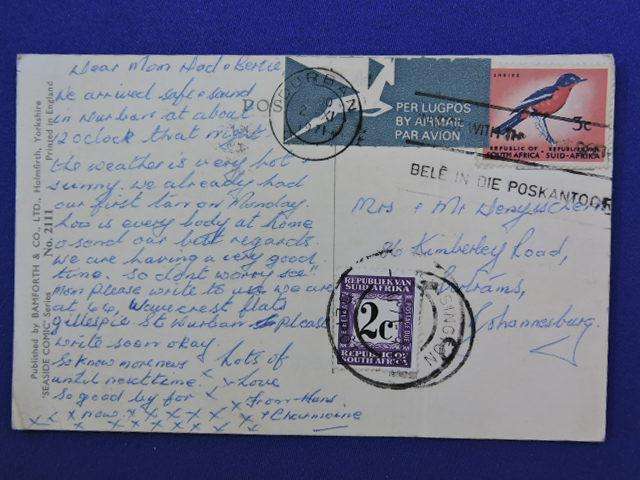 Dear Mom Dad + Bertie
We arrived safe + sound
in Durban at about
12 oclock that night
the weather is very hot,
sunny. we already had
our first tan on Monday.
hoo is every body at home
o send our best regards.
We are having a very good
time. So dont worry see"
Mom please write to us we are
at 66, Wavecrest flats
gillespie st Durban Please
write soon okay.
So know more news
until next time.
So good by for
now.
Lots of
love
From Hans
+ Charmaine
x x x x x x x x
x x x x x x x x
Published by BAMFORTH & CO., LTD., Holmfirth, Yorkshire
Printed in England
"SEASIDE COMIC" Series
No. 2111
POS
DURBAN
XI
PER LUGPOS
BY AIRMAIL
PAR AVION
WITH
SHRIKE
3c
REPUBLIC OF SOUTH AFRICA
REPUBLIEK VAN SUID-AFRIKA
BELÊ IN DIE POSKANTOOR
Mrs + Mr
Kimberley Road,
Bertrams,
Johannesburg.
REPUBLIEK VAN
SUID AFRIKA
POSTAGE DUE
2c
REPUBLIC OF
SOUTH AFRICA